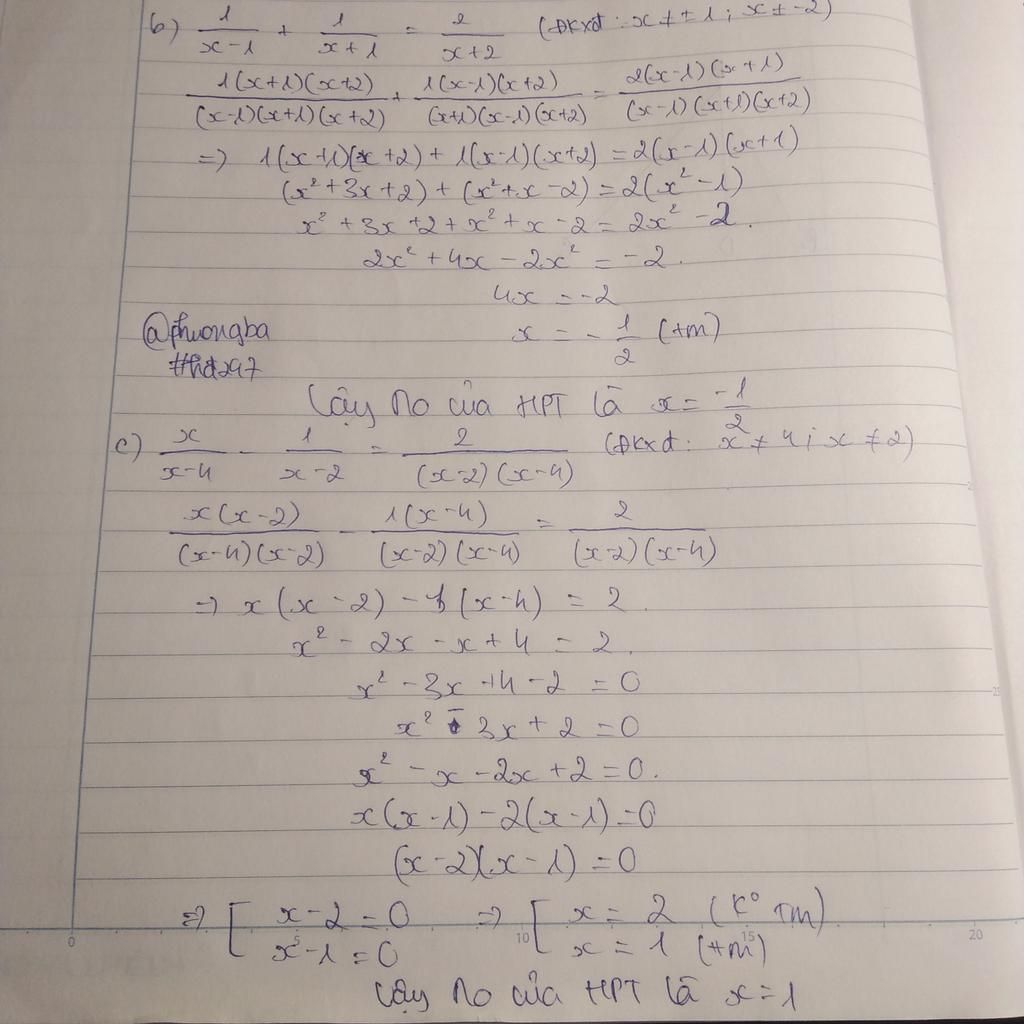 b) 1/(x-1) + 1/(x+1) = 2/(x+2) (ĐKXĐ: x ≠ ±1; x ≠ -2)
1(x+1)(x+2)/((x-1)(x+1)(x+2)) + 1(x-1)(x+2)/((x+1)(x-1)(x+2)) = 2(x-1)(x+1)/((x-1)(x+1)(x+2))
=> 1(x+1)(x+2) + 1(x-1)(x+2) = 2(x-1)(x+1)
(x² + 3x + 2) + (x² + x - 2) = 2(x² - 1)
x² + 3x + 2 + x² + x - 2 = 2x² - 2.
2x² + 4x - 2x² = -2.
4x = -2
@phuongba
x = -1/2 (tm)
#hd297
Vậy no của HPT là x = -1/2
c) x/(x-4) - 1/(x-2) = 2/((x-2)(x-4)) (ĐKXĐ: x ≠ 4; x ≠ 2)
x(x-2)/((x-4)(x-2)) - 1(x-4)/((x-2)(x-4)) = 2/((x-2)(x-4))
=> x(x-2) - 1(x-4) = 2.
x² - 2x - x + 4 = 2.
x² - 3x + 4 - 2 = 0
x² - 3x + 2 = 0
x² - x - 2x + 2 = 0.
x(x-1) - 2(x-1) = 0
(x-2)(x-1) = 0
=> [ x-2 = 0 => [ x = 2 (K° TM)
x-1 = 0 x = 1 (tm)
0 5 10 15 20
Vậy no của HPT là x = 1